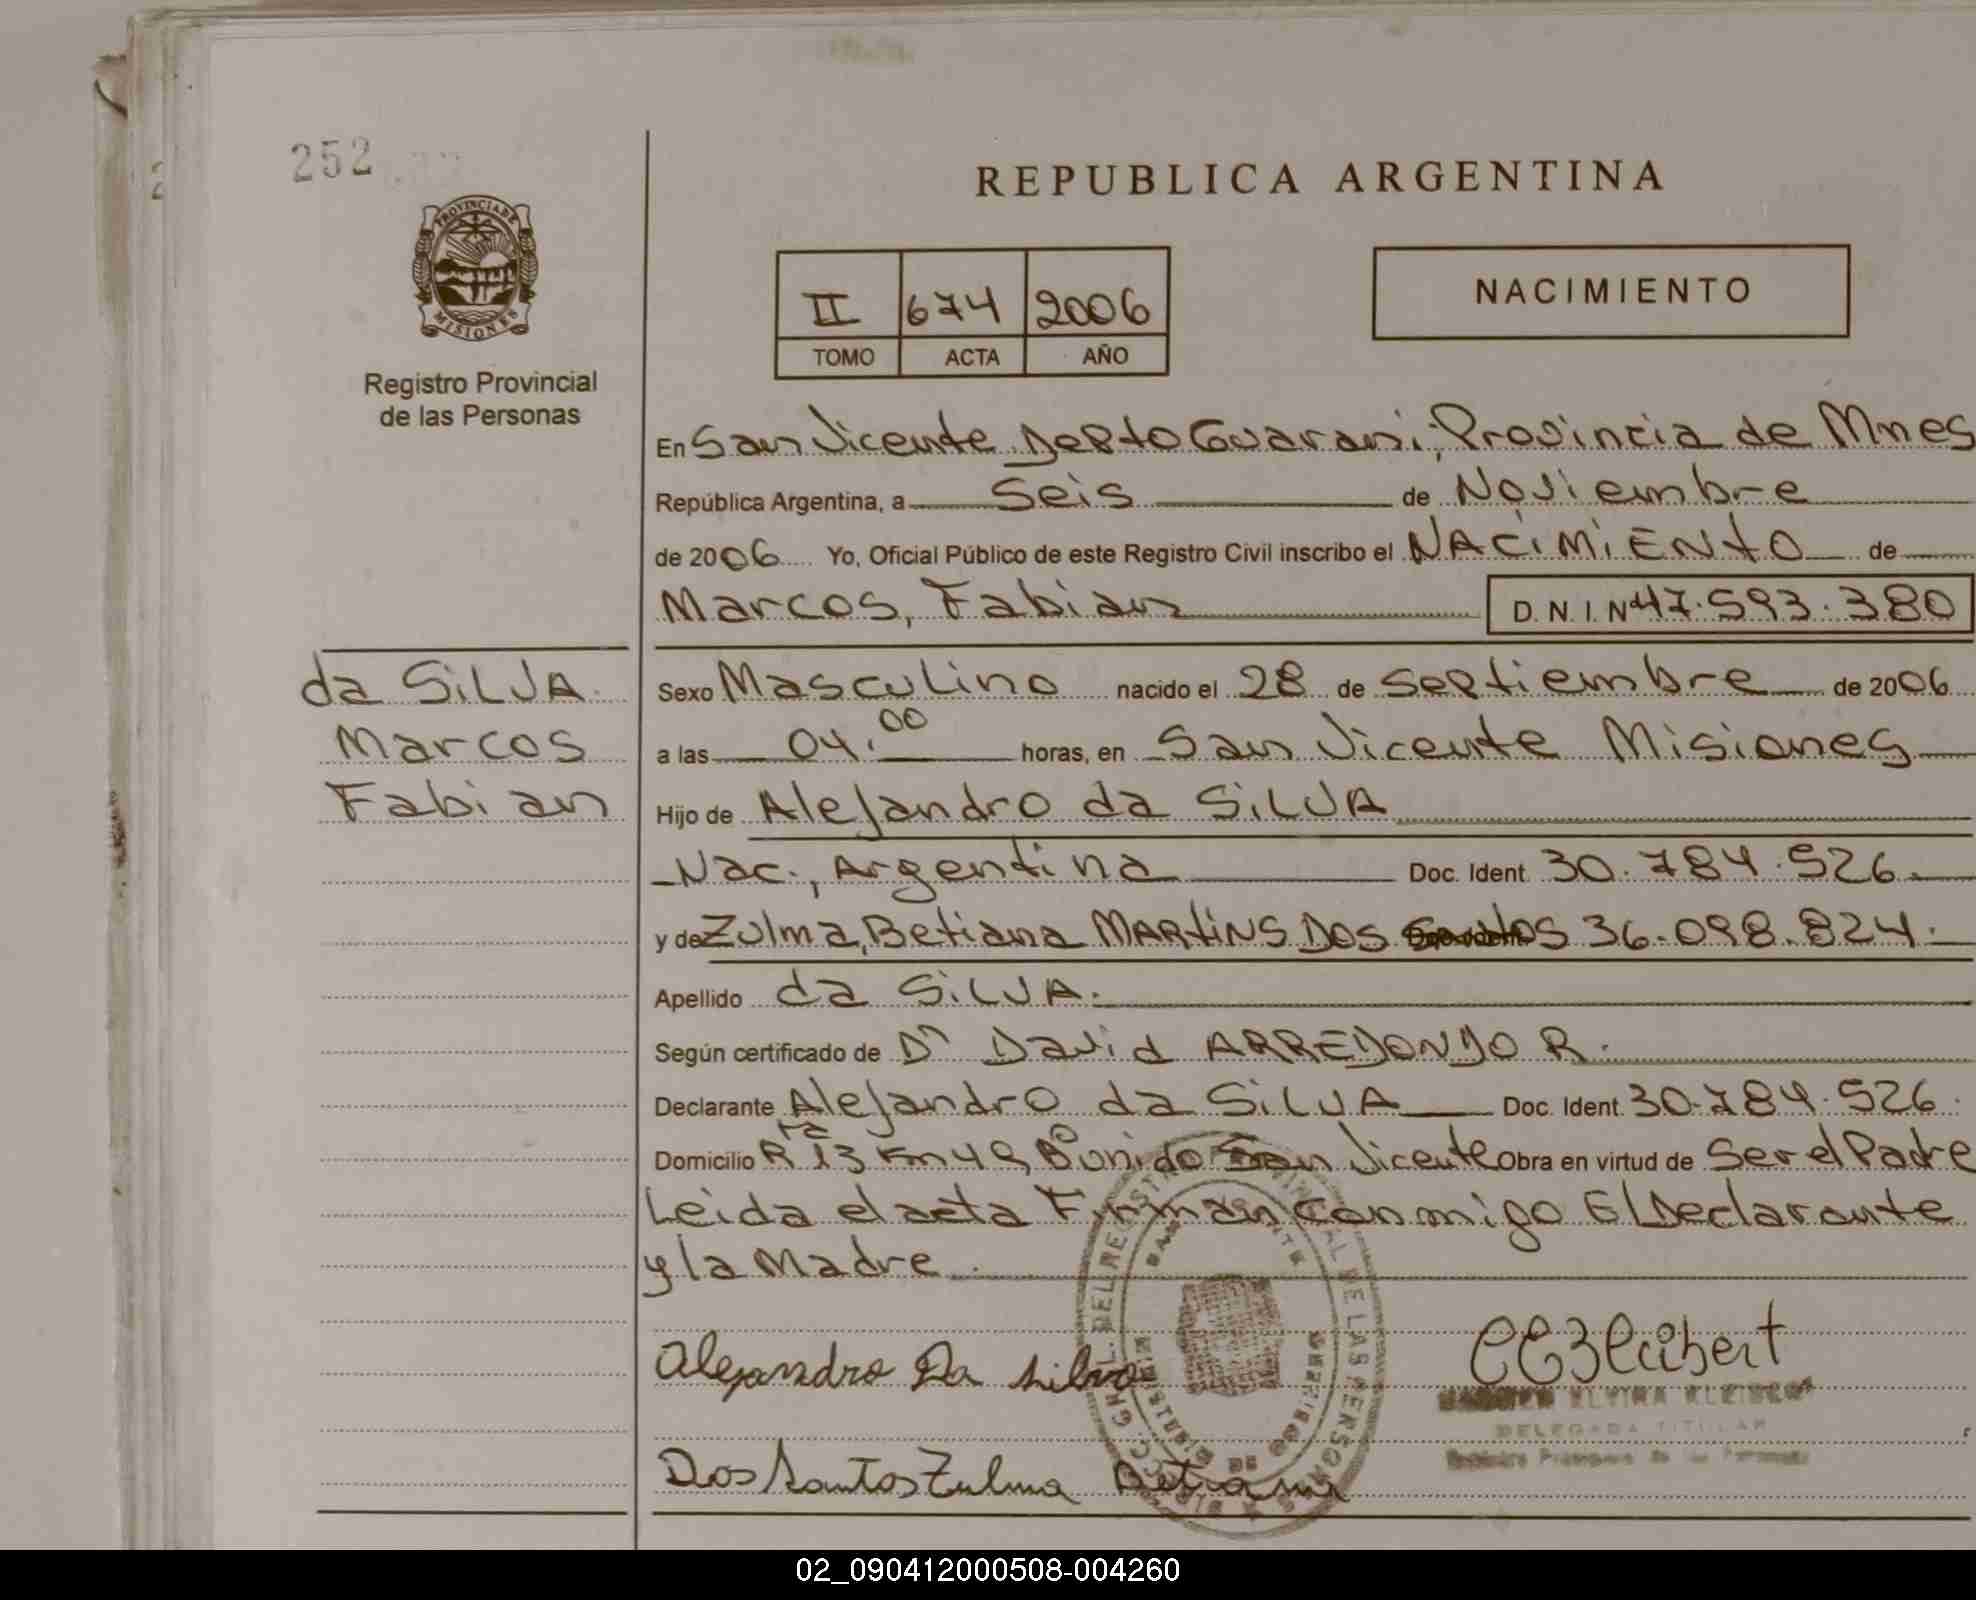 252
REPUBLICA ARGENTINA
PROVINCIA DE MISIONES
II 674 2006
TOMO ACTA AÑO
NACIMIENTO
Registro Provincial
de las Personas
En San Vicente Depto Guarani, Provincia de Mnes
República Argentina, a Seis de Noviembre
de 2006 Yo, Oficial Público de este Registro Civil inscribo el NACIMIENTO de
Marcos, Fabian D.N.I.Nº 47.593.380
da SILVA
Marcos
Fabian
Sexo Masculino nacido el 28 de Septiembre de 2006
a las 04.00 horas, en San Vicente Misiones
Hijo de Alejandro da SILVA
Nac., Argentina Doc. Ident. 30.784.526.
y de Zulma, Betiana MARtINS DOS Santos 36.098.824.
Apellido da SILVA.
Según certificado de Dr David ARREDONDO R.
Declarante Alejandro da SILVA Doc. Ident. 30.784.526.
Domicilio Rta 13 Km 49 Bº Unido San Vicente Obra en virtud de Ser el Padre
Leida el acta Firman conmigo El Declarante
y la Madre.
Alejandro Da Silva
Dos Santos Zulma Betiana
DEL REGISTRO PROVINCIAL DE LAS PERSONAS
ELVIRA
DELEGADA TITULAR
02_090412000508-004260